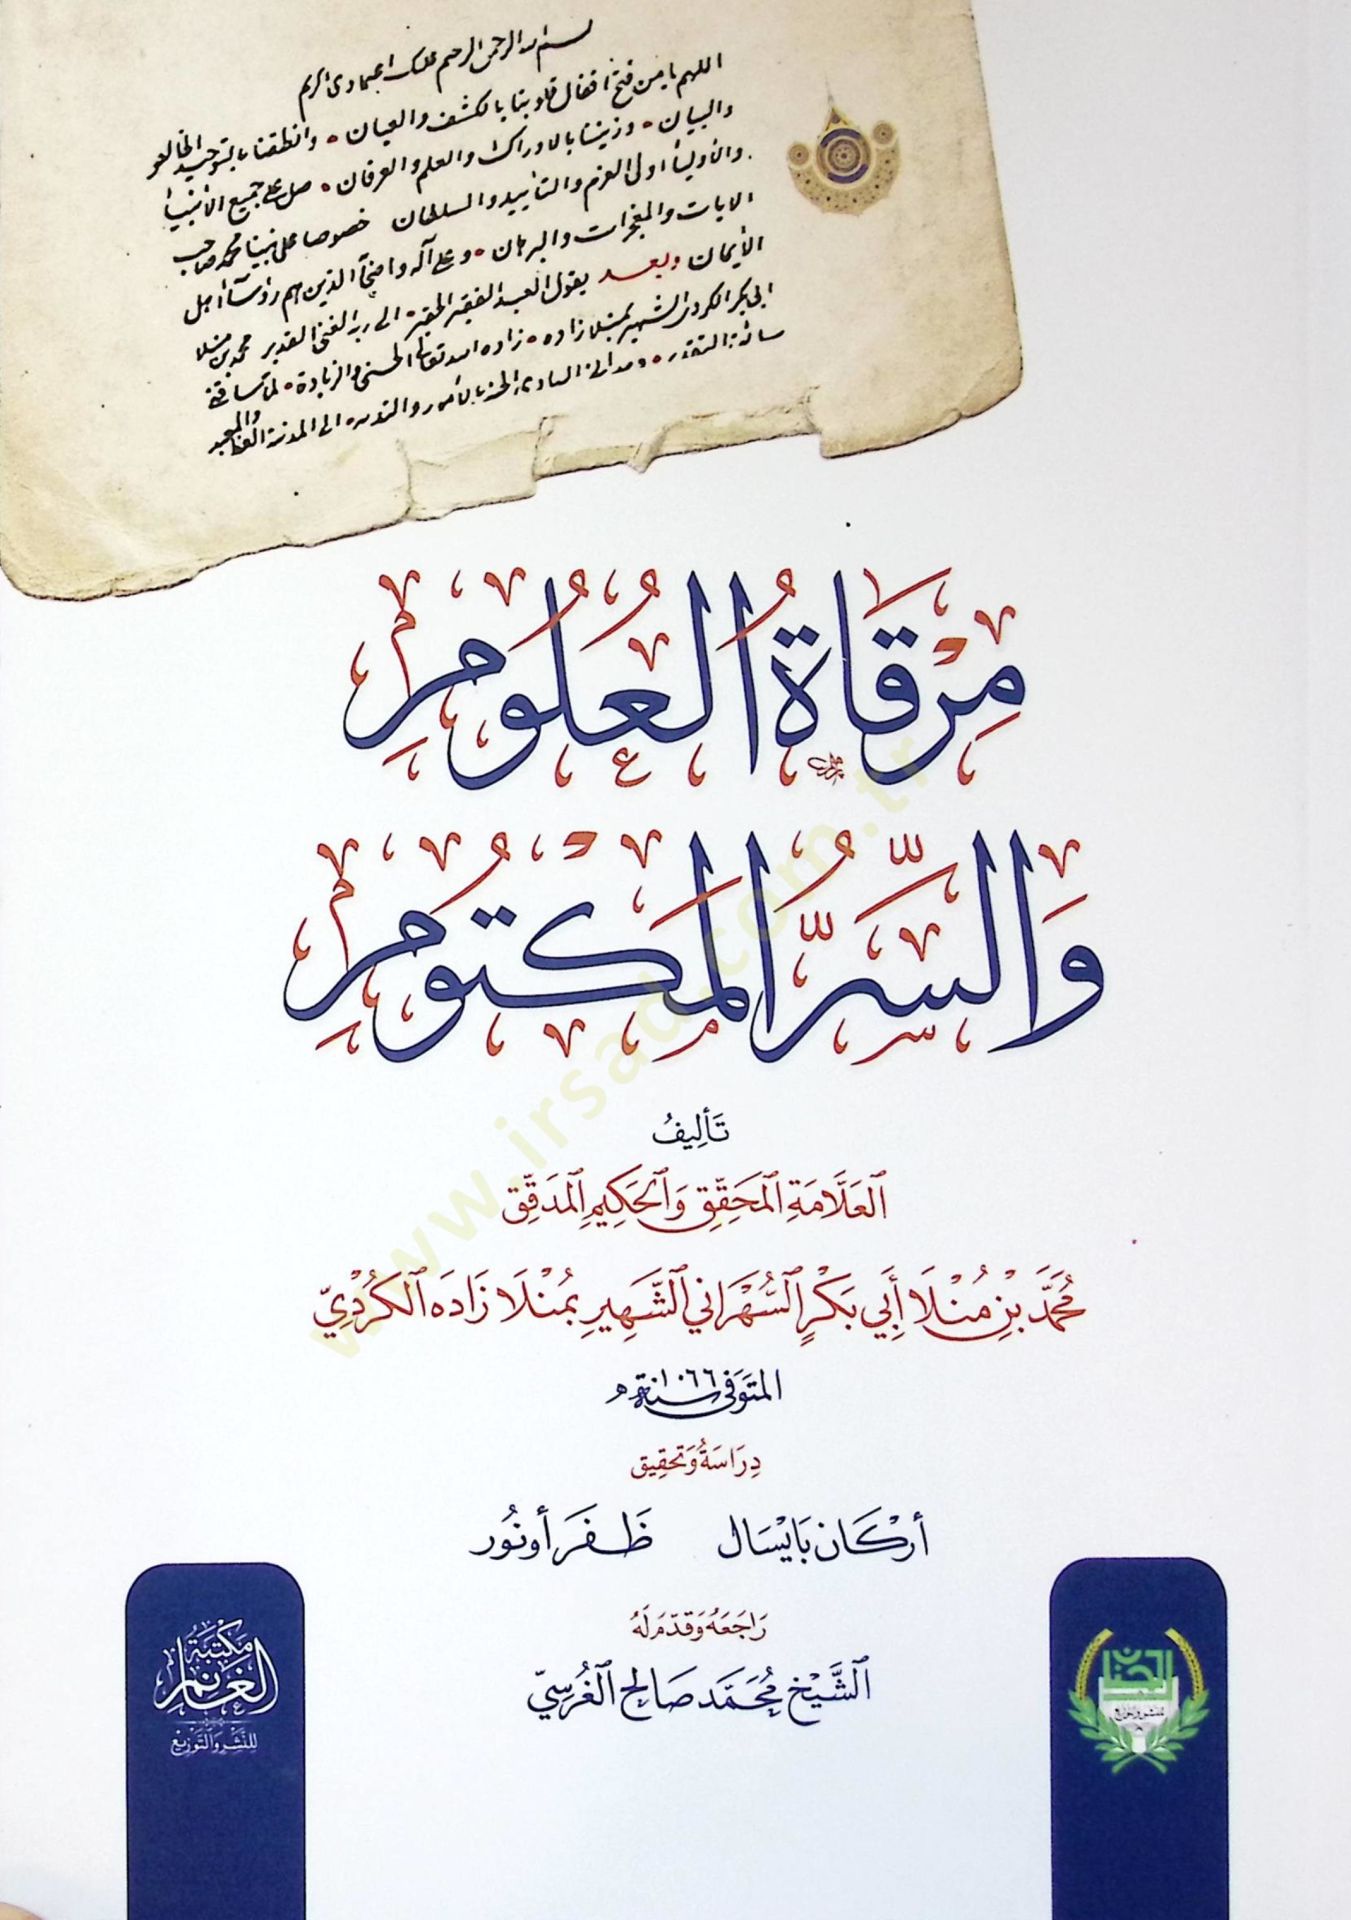 بسم الله الرحمن الرحيم عليك اعتمادي يا كريم
اللهم يا من فتح اقفال قلوبنا بالكشف والعيان وانطقنا بالتوحيد
والبيان وزيننا بالادراك والعلم والعرفان صل على جميع الأنبياء
والأولياء اولى العزم والتأييد والسلطان خصوصا على نبينا محمد صاحب
الايات والمعجزات والبرهان وعلى آله واصحابه الذين هم رؤساء اهل
الأيمان وبعد يقول العبد الفقير الحقير الى ربه الغنى القدير محمد بن منلا
ابى بكر الكردى الشهير بمنلا زاده زاده الله تعالى الحسنى والزيادة لما ساقنى
سائق التقدير
مِرْقَاةُ الْعُلُومِ
وَالسِّرُّ الْمَكْتُومِ
تَأْلِيفُ
العَلَّامَةِ المُحَقِّقِ وَالحَكِيمِ المُدَقِّقِ
مُحَمَّد بْنِ مُنْلَا أَبِي بَكْرٍ السُّهْرَانِي الشَّهِيرِ بمُنْلَا زَادَه الكُرْدِيّ
المتوفى سنة ١٠٦٦ هـ
دِرَاسَةُ وَتَحقِيق
أركَان بَايْسَال ظَفَر أونُور
رَاجَعَهُ وَقَدَّمَ لَهُ
الشَّيْخ مُحَمَّد صَالِح الغُرسِيّ
مكتبة
الغانم
للنشر والتوزيع
الجنان
للنشر والتوزيع
www.irsad.com.tr